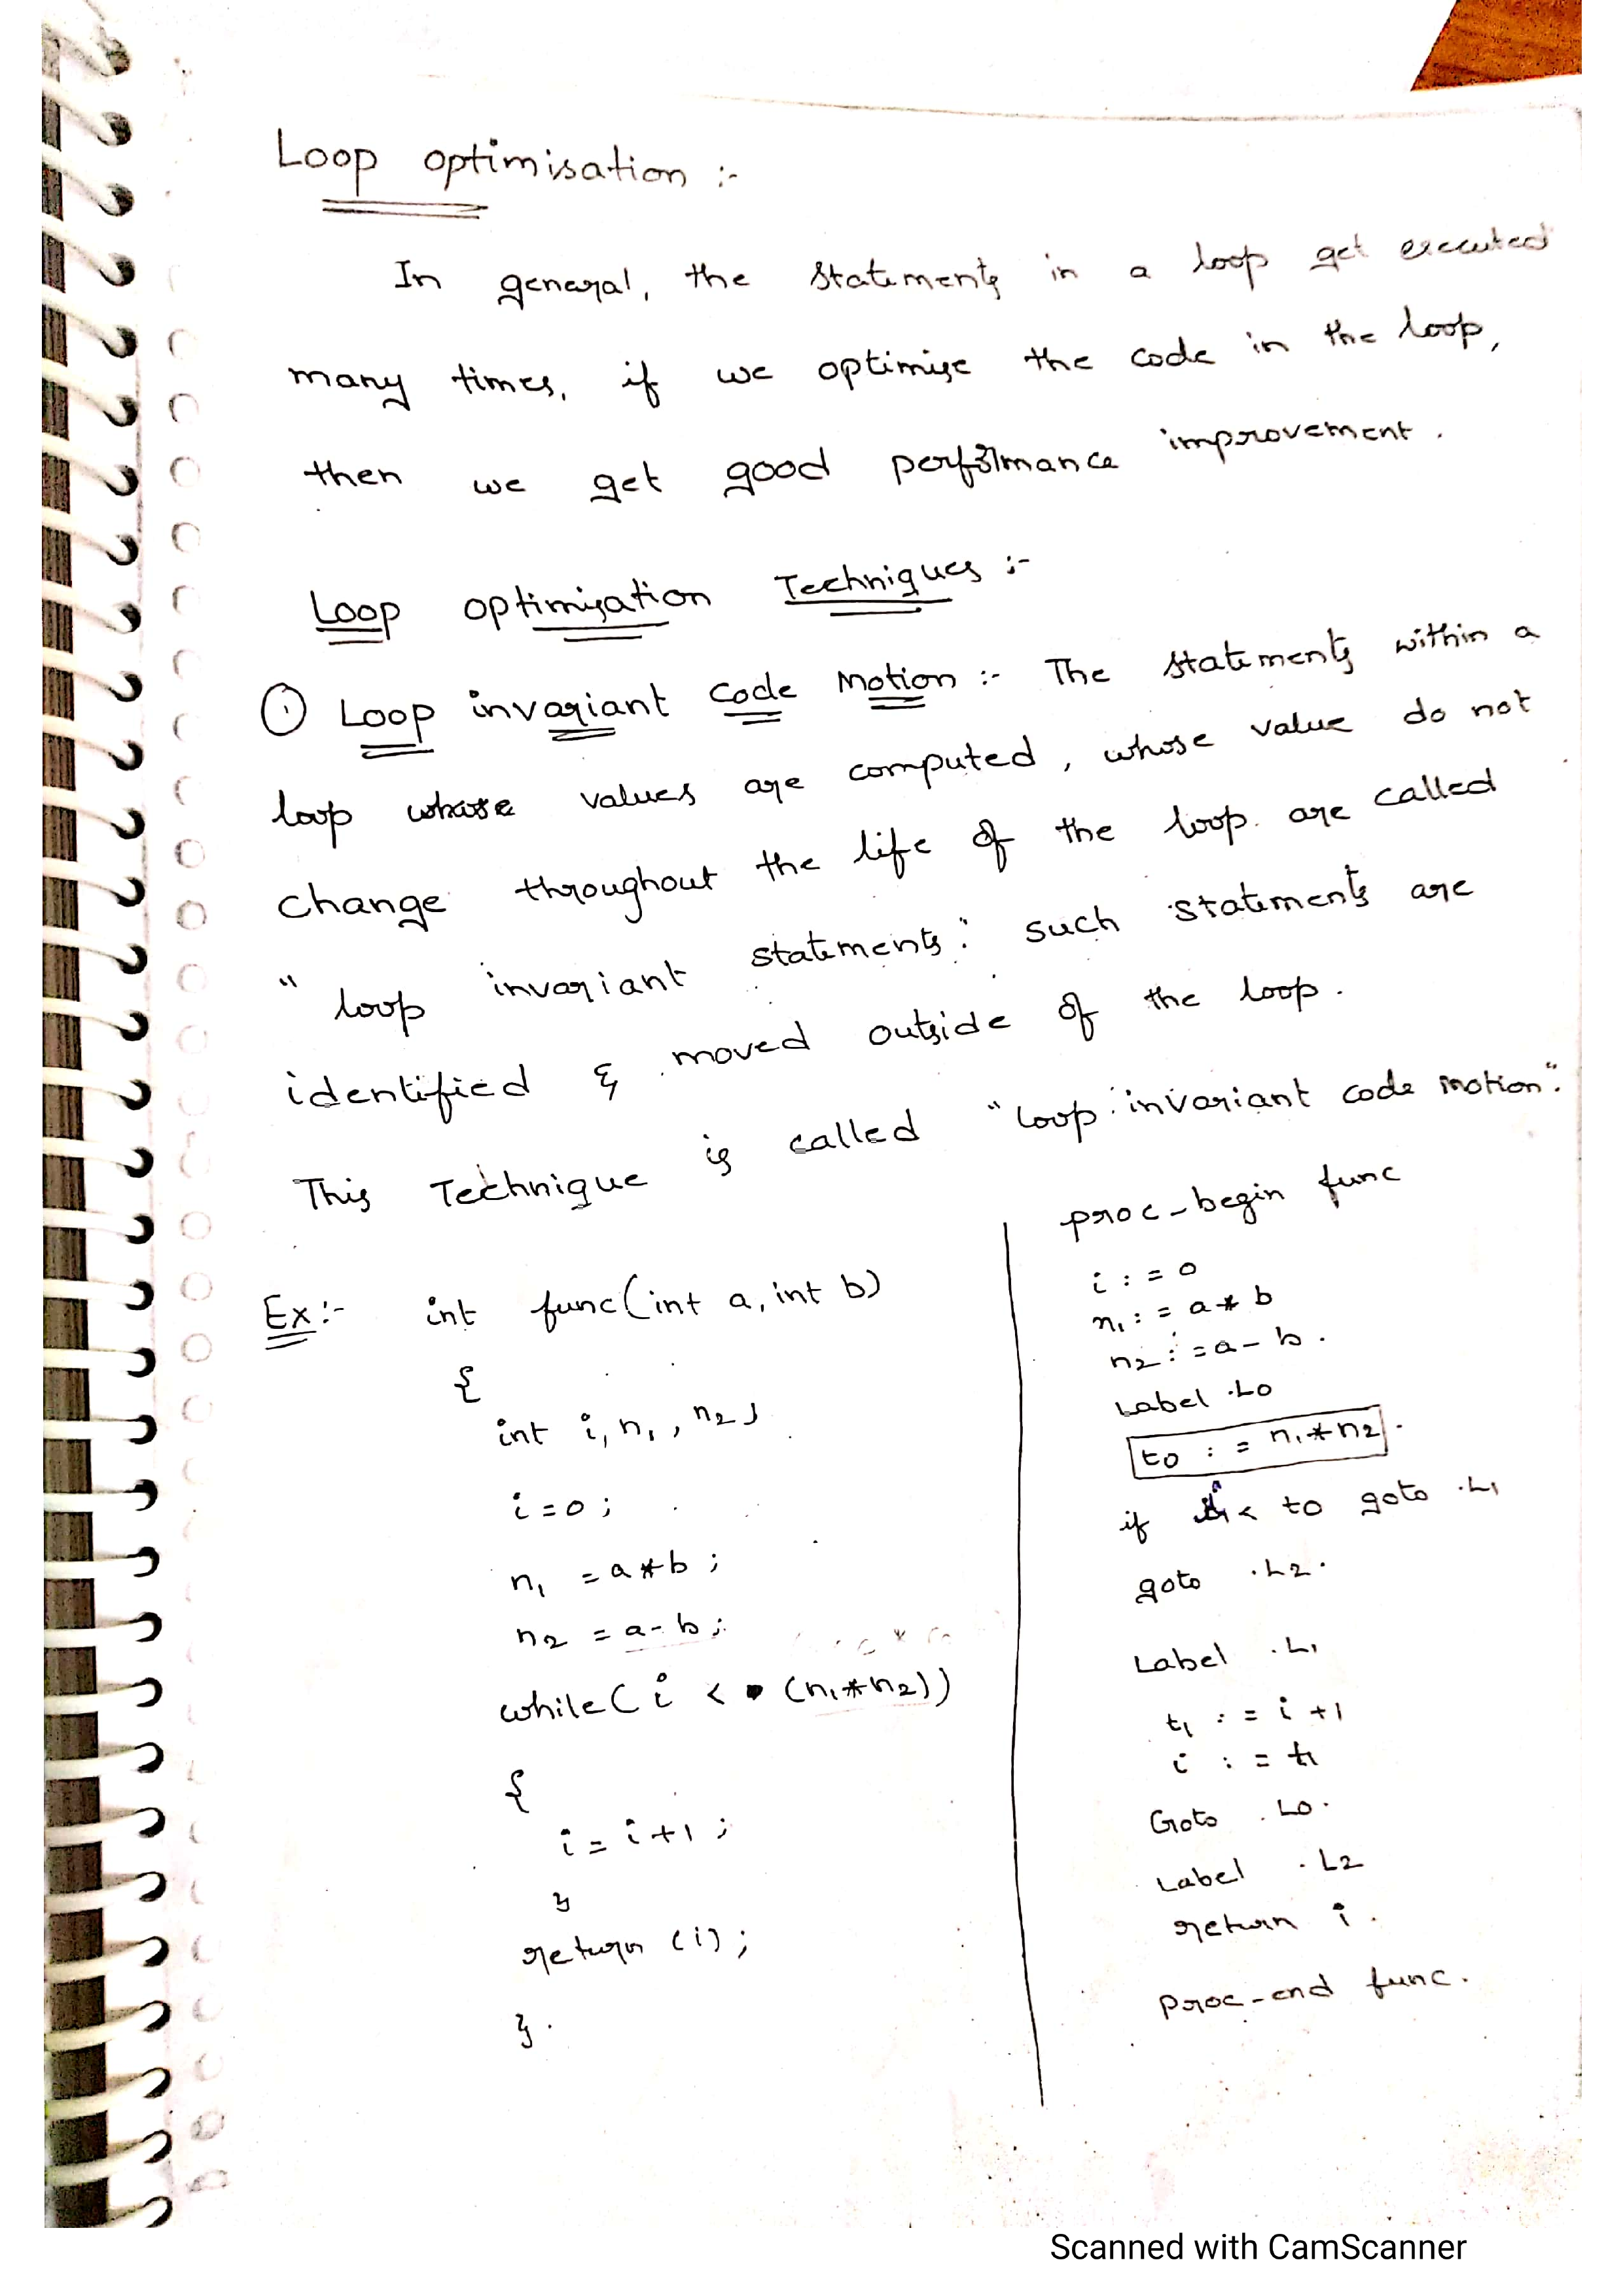 Loop optimisation :-
In general, the statements in a loop get executed
many times, if we optimise the code in the loop,
then we get good performance improvement.
Loop optimisation Techniques :-
① Loop invariant code Motion :- The statements within a
loop whose values are computed, whose value do not
change throughout the life of the loop are called
"loop invariant statements". such statements are
identified & moved outside of the loop.
This Technique is called "loop invariant code motion".
Ex:- int func(int a, int b)
{
int i, n1, n2;
i = 0;
n1 = a * b;
n2 = a - b;
while( i < (n1*n2))
{
i = i+1;
}
return (i);
}.
proc-begin func
i := 0
n1 := a * b
n2 := a - b.
Label .L0
t0 := n1*n2.
if i < t0 goto .L1
goto .L2.
Label .L1
t1 := i +1
i := t1
Goto .L0.
Label .L2
return i.
proc-end func.
Scanned with CamScanner